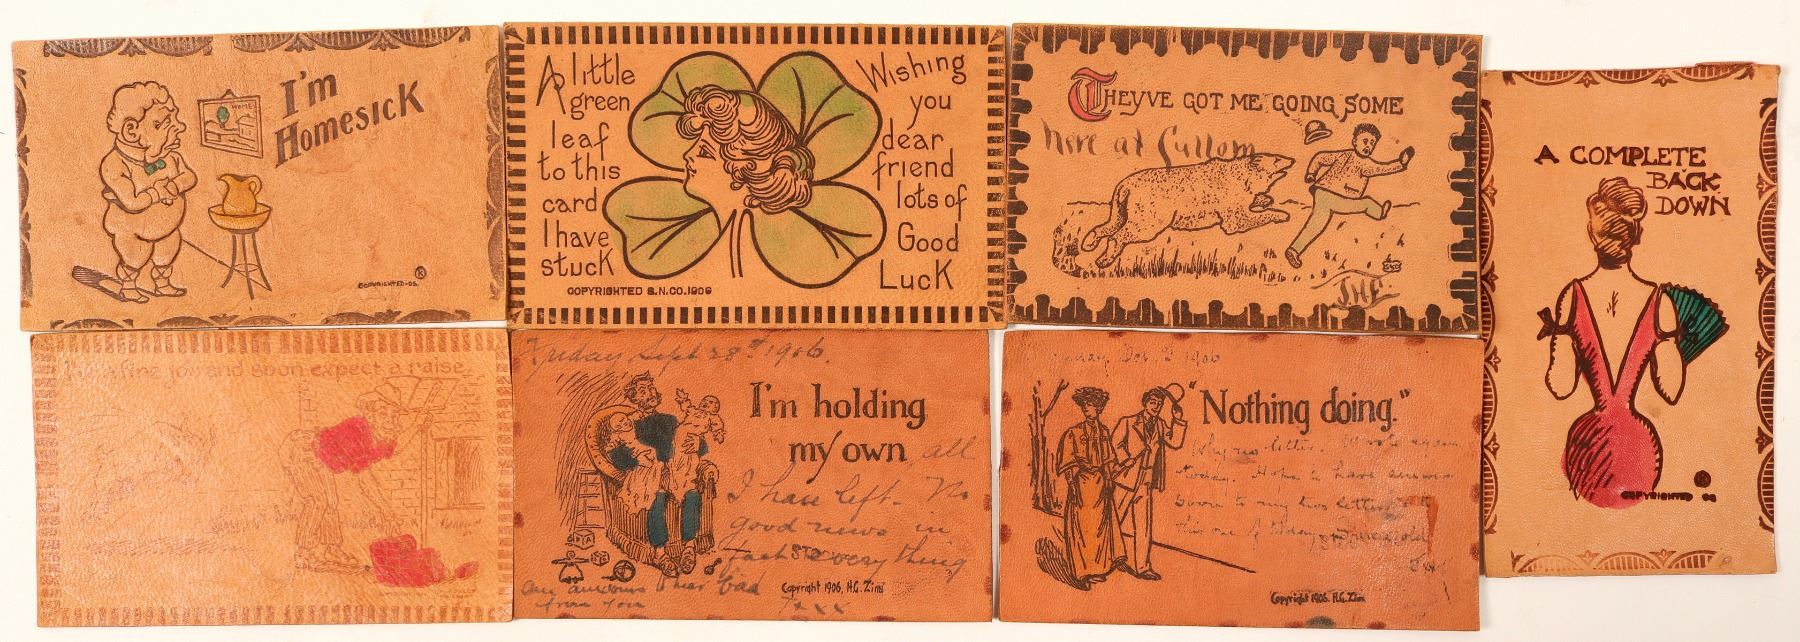 I'm
Homesick
HOME
COPYRIGHTED-05.
K
A little
green
leaf
to this
card
I have
stuck
Wishing
you
dear
friend
lots of
Good
Luck
COPYRIGHTED S.N.CO.1906
THEYVE GOT ME GOING SOME
here at Cullom
JHF
A COMPLETE
BACK
DOWN
COPYRIGHTED
fine job and soon expect a raise
Friday Sept 28th 1906.
I'm holding
my own all
I have left. No
good news in
fact everything
bad
from you
Copyright 1906, H.G. Zim
Oct 1906
"Nothing doing."
Why no letter. Wrote again
today. Hope to have answer
soon to my two letters
this one
Copyright 1906. H.G. Zim